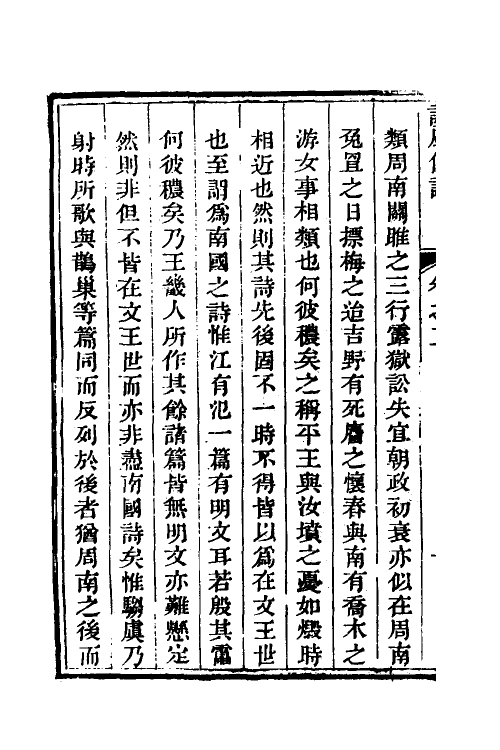 類周南關雎之三行露獄訟失宜朝政初衰亦似在周南
兔罝之日摽梅之迨吉野有死麕之懷春與南有喬木之
游女事相類也何彼穠矣之稱平王與汝墳之憂如燬時
相近也然則其詩先後固不一時不得皆以爲在文王世
也至謂爲南國之詩惟江有汜一篇有明文耳若殷其靁
何彼穠矣乃王畿人所作其餘諸篇皆無明文亦難懸定
然則非但不皆在文王世而亦非盡南國詩矣惟騶虞乃
射時所歌與鵲巢等篇同而反列於後者猶周南之後而